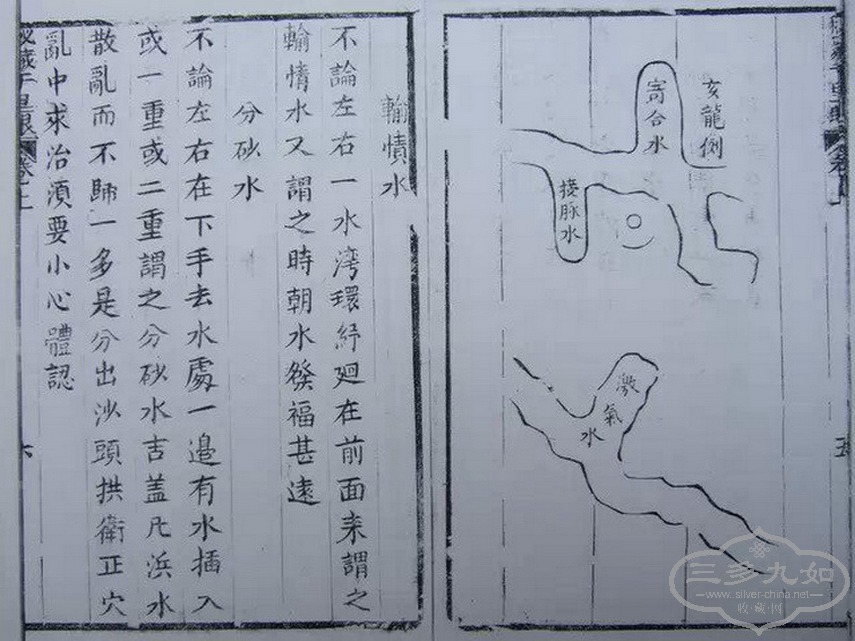 亥龍
寄合水
接脈水
激氣水
五
輸情水
不論左右一水湾環紆廻在前面来謂之
輸情水又謂之時朝水發福甚遠
分砂水
不論左右在下手去水處一邊有水插入
或一重或二重謂之分砂水吉盖凡浜水
散亂而不歸一多是分出沙頭拱衛正穴
亂中求治須要小心體認
千里眼
六
三多九如
www.silver-china.net
收藏网